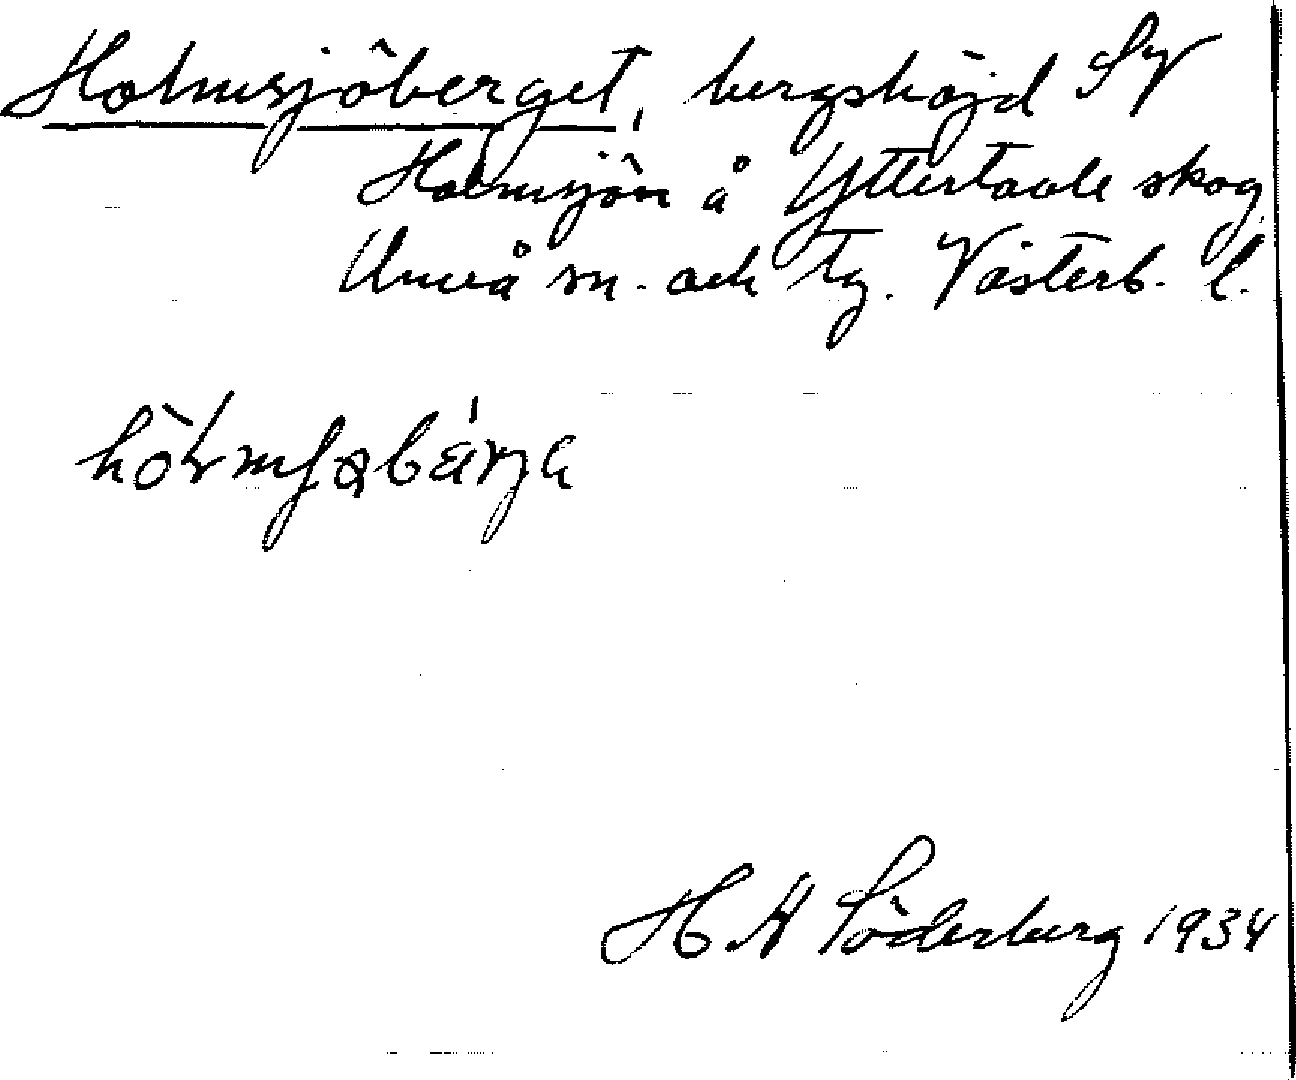 Holmsjöberget, bergshöjd SV
Holmsjön å Yttertavle skog,
Umeå sn. och tg. Västerb. l.
H A Söderberg 1934